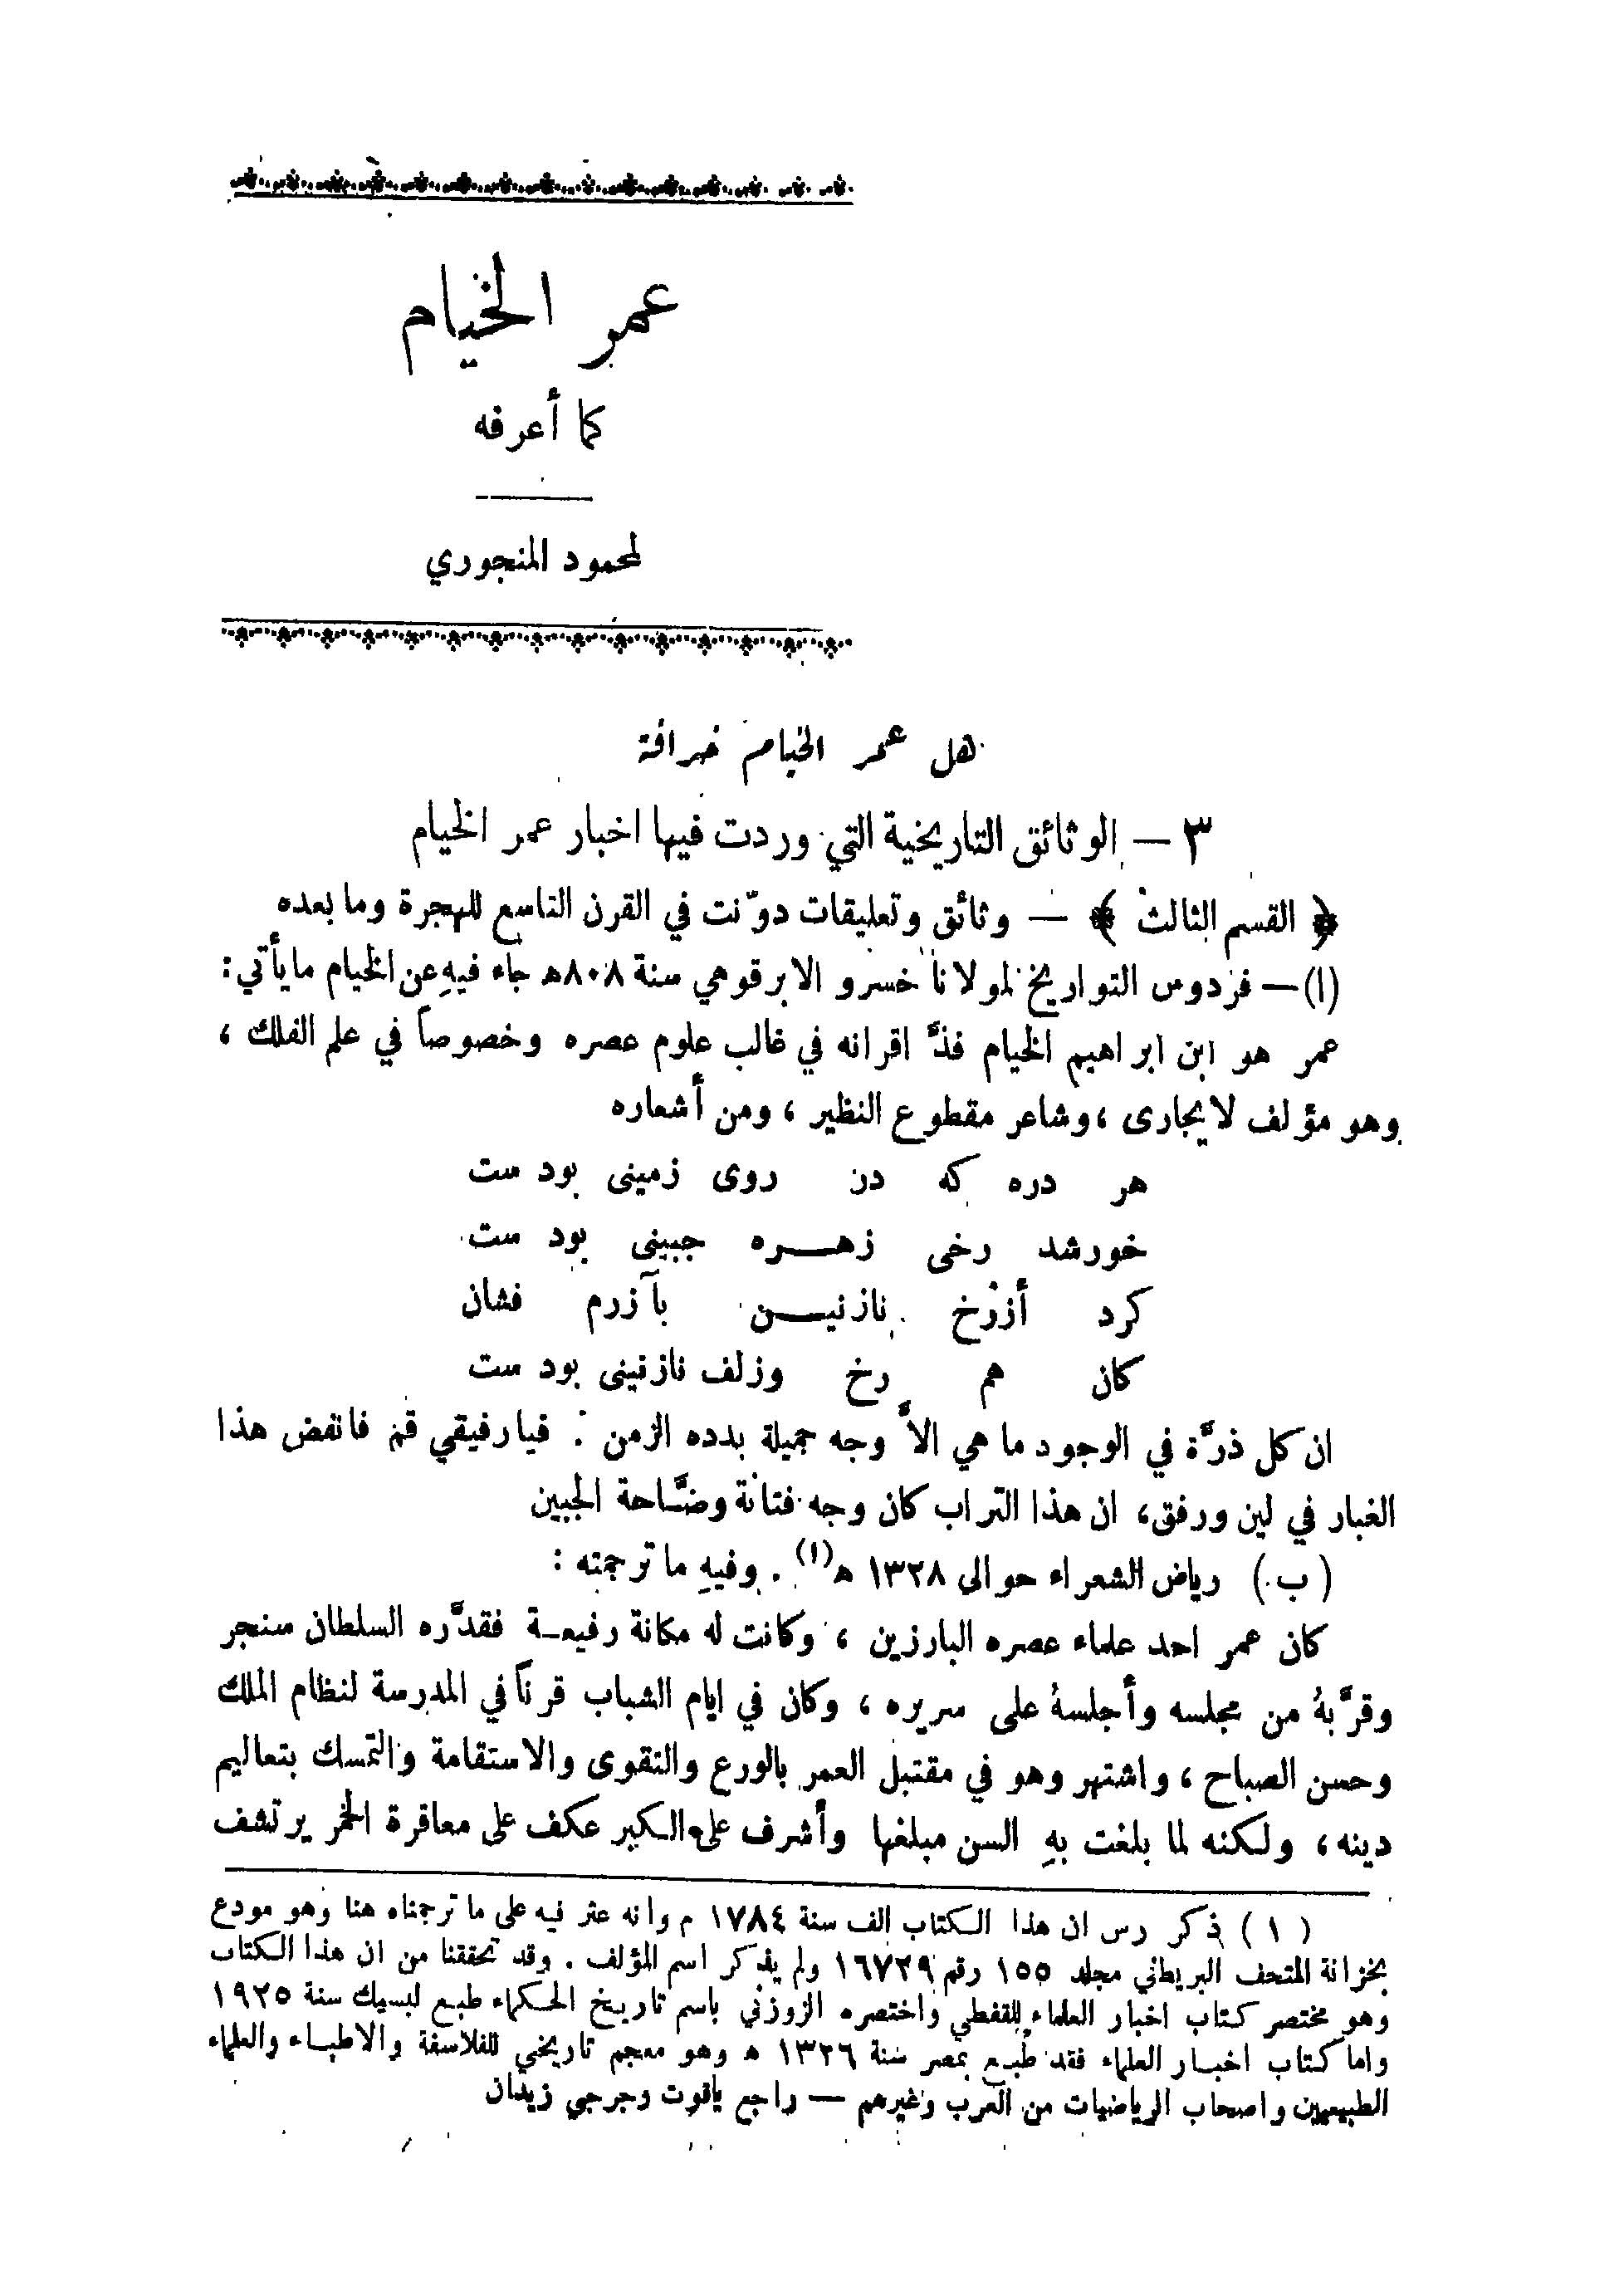 عمر الخيام
كما أعرفه
لمحمود المنجوري
هل عمر الخيام خرافة
٣ — الوثائق التاريخية التي وردت فيها اخبار عمر الخيام
﴿ القسم الثالث ﴾ — وثائق وتعليقات دوّنت في القرن التاسع للهجرة وما بعده
(ا) — فزدوس التواريخ لمولانا خسرو الابرقوهي سنة ٨٠٨ه جاء فيهِ عن الخيام ما يأتي:
عمر هو ابن ابراهيم الخيام فذَّ اقرانه في غالب علوم عصره وخصوصاً في علم الفلك ،
وهو مؤلف لا يجارى ، وشاعر مقطوع النظير ، ومن أشعاره
هر دره كه دن روى زمينى بود ست
خورشد رخى زهـــره جبينى بود ست
كرد أزرخ نازنيـــن بآزرم فشان
كان هم رخ وزلف نازنينى بود ست
ان كل ذرَّة في الوجود ما هي الاَّ وجه جميلة بدده الزمن : فيا رفيقي قم فانفض هذا
الغبار في لين ورفق، ان هذا التراب كان وجه فتانة وضَّـاحة الجبين
(ب) رياض الشعراء حوالى ١٣٢٨ ه(١) . وفيهِ ما ترجمته :
كان عمر احد علماء عصره البارزين ، وكانت له مكانة رفيعـة فقدَّره السلطان سنجر
وقرَّبهُ من مجلسه وأجلسهُ على سريره ، وكان في ايام الشباب قرناً في المدرسة لنظام الملك
وحسن الصباح ، واشتهر وهو في مقتبل العمر بالورع والتقوى والاستقامة والتمسك بتعاليم
دينه ، ولكنه لما بلغت بهِ السن مبلغها وأشرف على الكبر عكف على معاقرة الخمر يرتشف
(١) ذكر رس ان هذا الكتاب الف سنة ١٧٨٤ م وانه عثر فيه على ما ترجمناه هنا وهو مودع
بخزانة المتحف البريطاني مجلد ١٥٥ رقم ١٦٧٢٩ ولم يذكر اسم المؤلف . وقد تحققنا من ان هذا الكتاب
وهو مختصر كتاب اخبار العلماء للقفطي واختصره الزوزني باسم تاريخ الحكماء طبع لبسيك سنة ١٩٢٥
واما كتاب اخبـار العلماء فقد طبـع بمصر سنة ١٣٢٦ ه وهو معجم تاريخي للفلاسفة والاطبـاء والعلماء
الطبيعيين واصحاب الرياضيات من العرب وغيرهم — راجع ياقوت وجرجي زيدان